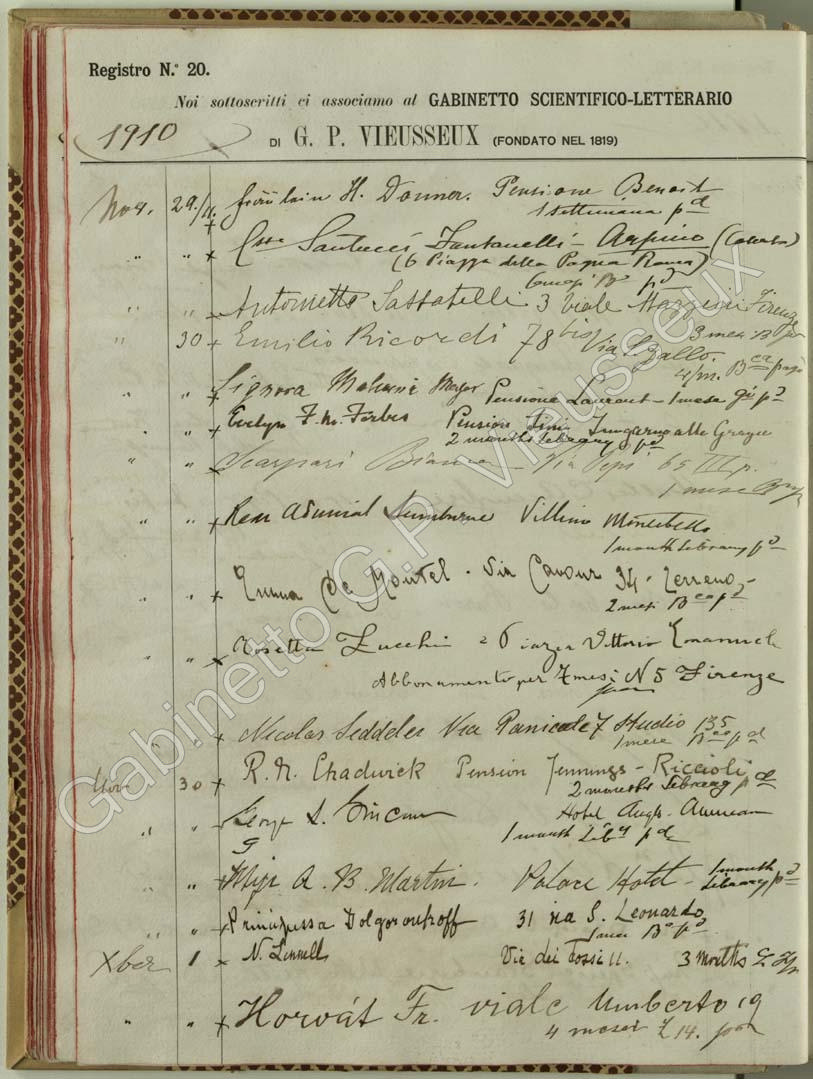 Registro N.º 20.
Noi sottoscritti ci associamo al GABINETTO SCIENTIFICO-LETTERARIO
1910
DI G. P. VIEUSSEUX (FONDATO NEL 1819)
Nov. 29/11. Fräulein H. Donner. Pensione Benoit
1 settimana pd
" " x Csse Santucci Fontanelli - Arpino (Caserta)
(6 Piazza della Pigna Roma)
6 mesi pd
" " Antonietta Sassatelli 3 Viale Mazzini Firenze
3 mesi
" 30 x Emilio Ricordi 78 bis Via S. Gallo.
4/m. Bca
" " x Signora Meyer Pensione Laurent - 1 mese pd
" " x Evelyn F. M. Forbes Pension Lungarno alle Grazie
2 months library pd
" " x Scarpari Bianca - Via Pepi 65 III p.
1 mese
" " x Rear Admiral Swinburne Villino Montebello
1 month library pd
" " x Emma De Montel - Via Cavour 34 - Terreno -
2 mesi Bca pd
" " x Rosetta Zucchini 2 Piazza Vittorio Emanuele
Abbonamento per 7 mesi N 5 Firenze
" " x Nicolas Seddeler Via Panicale 7 Studio 135
1 mese Bca pd
Nov 30 x R. N. Chadwick Pension Jennings - Riccioli
2 months library pd
" " x George S. Hotel Anglo-American
1 month Liby pd
" " x A. B. Martin. Palace Hotel - 1 month
Library pd
" " x Principessa Dolgoroukoff 31 via S. Leonardo
1 mese Bca pd
Xber 1 x N. Linnell Via dei Fossi 11. 3 months
" " x Horvát Fr. viale Umberto 19
4 mesi £ 14.
Gabinetto G.P. Vieusseux